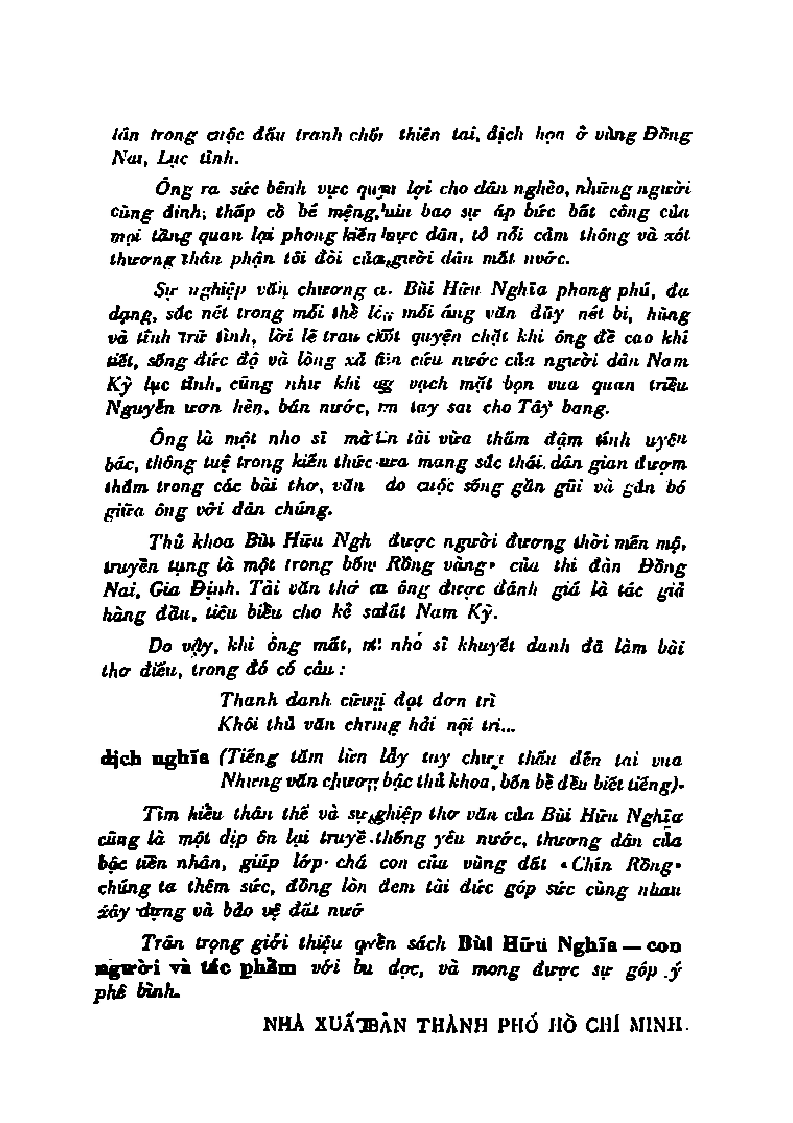 tân trong cuộc đấu tranh chống thiên tai, địch họa ở vùng Đồng
Nai, Lục tỉnh.
Ông ra sức bênh vực quyền lợi cho dân nghèo, những người
cùng đinh, thấp cổ bé miệng, bao sự áp bức bất công của
mọi tầng quan lại phong kiến thực dân, tỏ nỗi cảm thông và xót
thương thân phận tôi đòi của người dân mất nước.
Sự nghiệp văn chương của Bùi Hữu Nghĩa phong phú, đa
dạng, sắc nét trong mỗi thể mỗi áng văn đầy nét bi, hùng
và tính trữ tình, lời lẽ trau chuốt quyện chặt khi ông đề cao khí
tiết, sống đức độ và lòng xả thân cứu nước của người dân Nam
Kỳ lục tỉnh, cũng như khi vạch mặt bọn vua quan triều
Nguyễn ươn hèn, bán nước, tay sai cho Tây bang.
Ông là một nho sĩ mà tài vừa thấm đậm tính uyên
bác, thông tuệ trong kiến thức vừa mang sắc thái dân gian đượm
thắm trong các bài thơ, văn do cuộc sống gần gũi và gắn bó
giữa ông với dân chúng.
Thủ khoa Bùi Hữu Ngh được người đương thời mến mộ,
truyền tụng là một trong bốn Rồng vàng» của thi đàn Đồng
Nai, Gia Định. Tài văn thơ ông được đánh giá là tác giả
hàng đầu, tiêu biểu cho kẻ sĩ đất Nam Kỳ.
Do vậy, khi ông mất, nhà nho sĩ khuyết danh đã làm bài
thơ điếu, trong đó có câu :
Thanh danh cửu đạt đơn trì
Khôi thủ văn chương hải nội tri...
dịch nghĩa (Tiếng tăm lừng lẫy tuy chưa thấu đến tai vua
Nhưng văn chương bậc thủ khoa, bốn bề đều biết tiếng).
Tìm hiểu thân thế và sự nghiệp thơ văn của Bùi Hữu Nghĩa
cũng là một dịp ôn lại truyền thống yêu nước, thương dân của
bậc tiền nhân, giúp lớp cha con của vùng đất «Chín Rồng»
chúng ta thêm sức, đồng lòn đem tài đức góp sức cùng nhau
xây dựng và bảo vệ đất nướ
Trân trọng giới thiệu quyển sách Bùi Hữu Nghĩa — con
người và tác phẩm với bạn đọc, và mong được sự góp ý
phê bình.
NHÀ XUẤT BẢN THÀNH PHỐ HỒ CHÍ MINH.